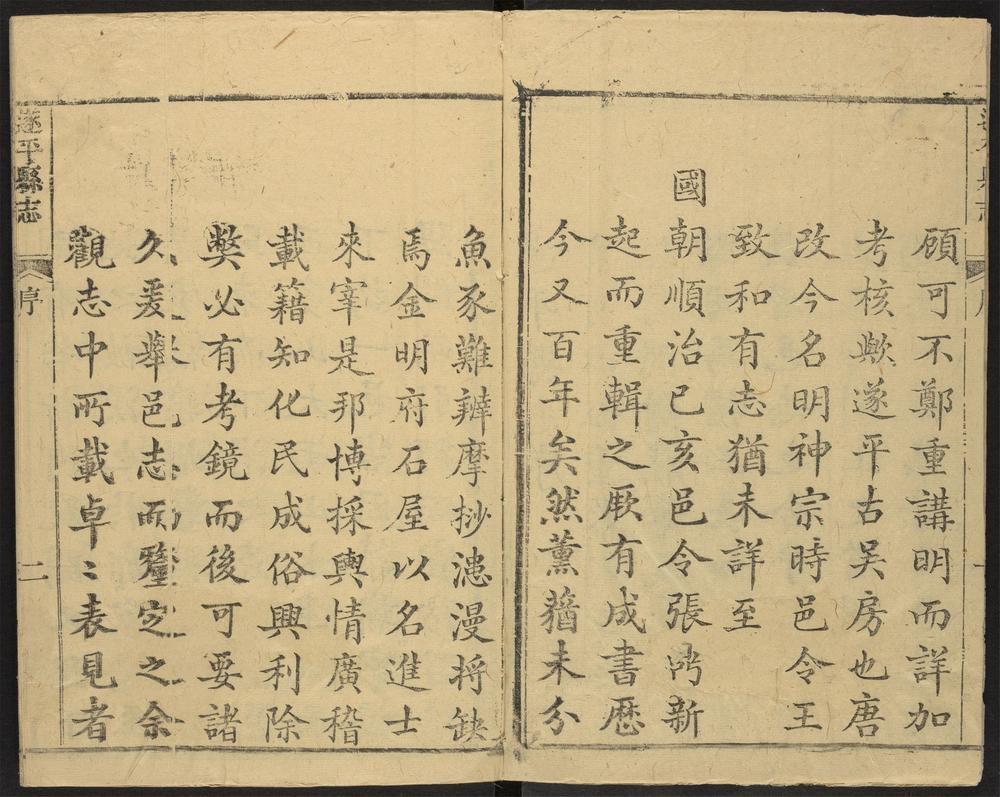 顧可不鄭重講明而詳加
考核歟遂平古吳房也唐
改今名明神宗時邑令王
致和有志猶未詳至
國朝順治己亥邑令張鼎新
起而重輯之厥有成書歷
今又百年矣然薰蕕未分
魚豕難辨摩抄漶漫將缺
焉金明府石屋以名進士
來宰是邦博採輿情廣稽
載籍知化民成俗興利除
獘必有考鏡而後可要諸
久爰舉邑志而釐定之余
觀志中所載卓〻表見者
遂平縣志
序
二